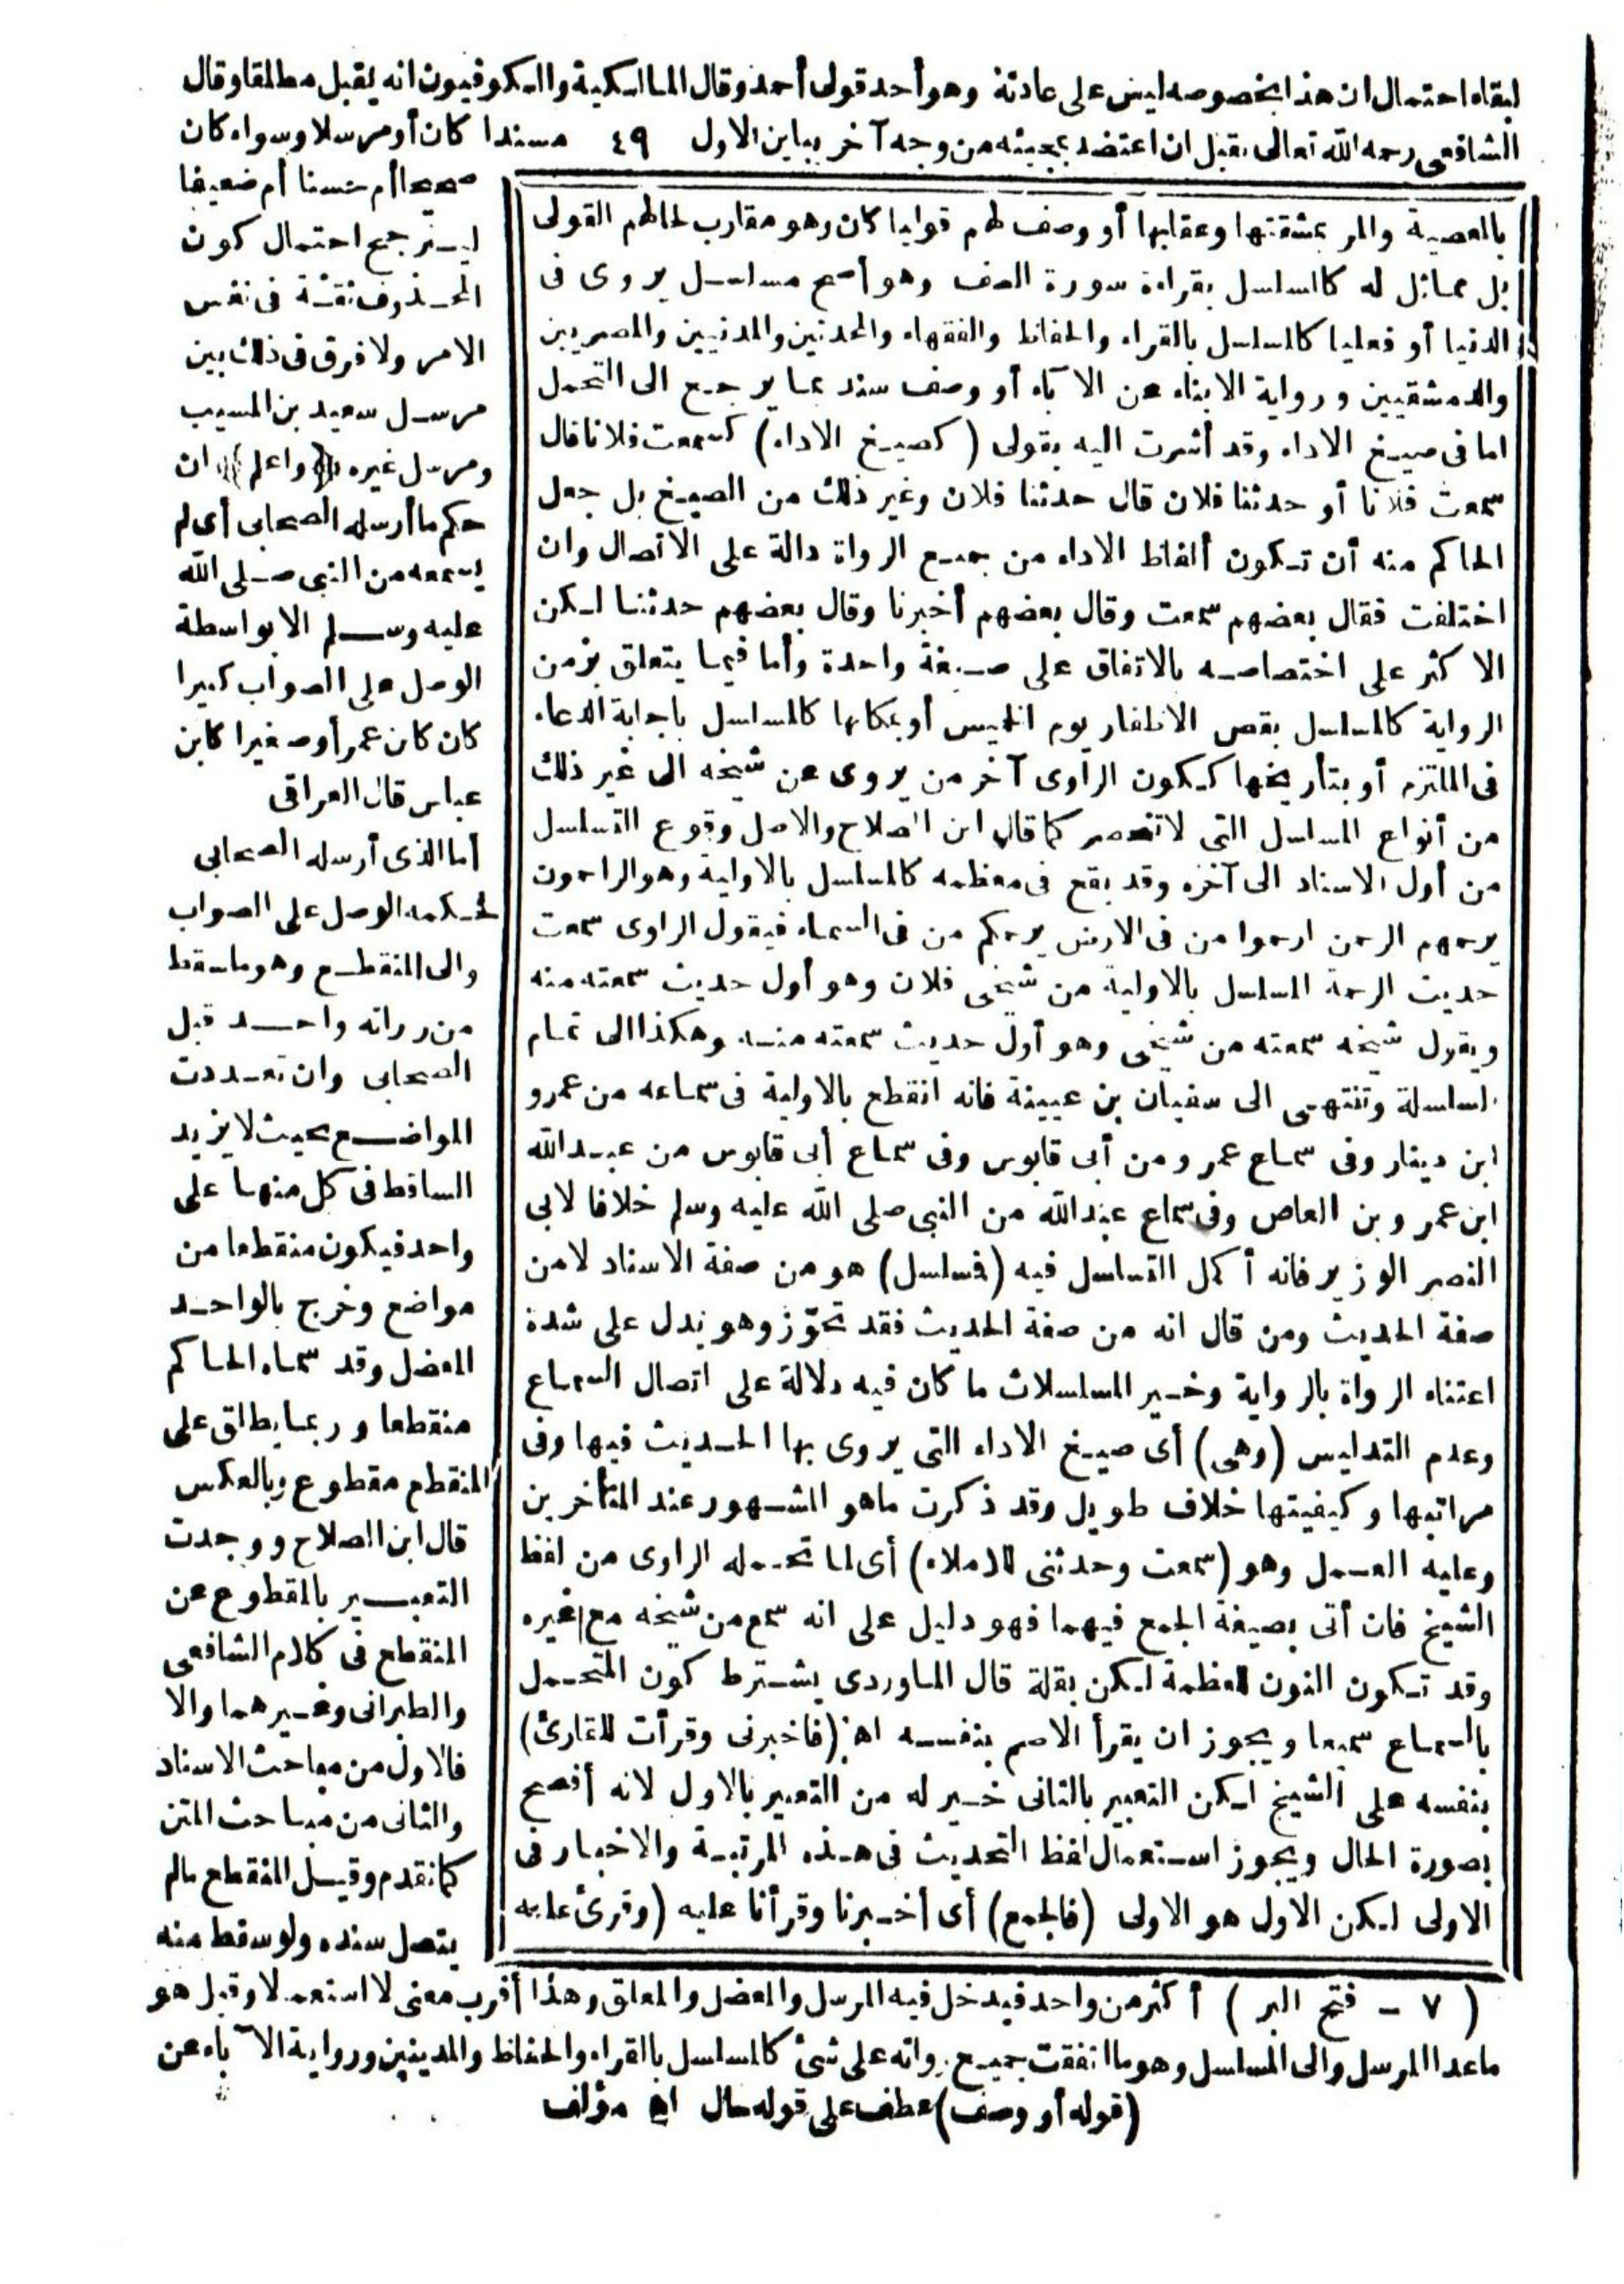 لبقاء احتمال ان هذا بخصوصه ليس على عادته وهو أحد قولى أحمد وقال المالكية والكوفيون انه يقبل مطلقا وقال
الشافعى رحمه الله تعالى يقبل ان اعتضد بمجيئه من وجه آخر يباين الاول ٤٩ مسندا كان أو مرسلا وسواء كان
صحيحا أم حسنا أم ضعيفا
ليترجح احتمال كون
المحذوف ثقة فى نفس
الامر ولا فرق فى ذلك بين
مرسل سعيد بن المسيب
ومرسل غيره (واعلم) ان
حكم ما أرسله الصحابى أى لم
يسمعه من النبى صلى الله
عليه وسلم الا بواسطة
الوصل على الصواب كبيرا
كان كابن عمر أو صغيرا كابن
عباس قال العراقى
أما الذى أرسله الصحابى
فحكمه الوصل على الصواب
والى المنقطع وهو ما سقط
من رواته واحد قبل
الصحابى وان تعددت
المواضع بحيث لا يزيد
الساقط فى كل منها على
واحد فيكون منقطعا من
مواضع وخرج بالواحد
المعضل وقد سماه الحاكم
منقطعا وربما يطلق على
المنقطع مقطوع وبالعكس
قال ابن الصلاح ووجدت
التعبير بالمقطوع عن
المنقطع فى كلام الشافعى
والطبرانى وغيرهما والا
فالاول من مباحث الاسناد
والثانى من مباحث المتن
كما تقدم وقيل المنقطع مالم
يتصل سنده ولو سقط منه
بالعصية والمر بمشقتها وعقابها أو وصف لهم قوليا كان وهو مقارب لحالهم القولى
بل مماثل له كالمسلسل بقراءة سورة الصف وهو أصح مسلسل يروى فى
الدنيا أو فعليا كالمسلسل بالقراء والحفاظ والفقهاء والمحدثين والمدنيين والمصريين
والدمشقيين ورواية الابناء عن الآباء أو وصف سند بما يرجع الى التحمل
اما فى صيغ الاداء وقد أشرت اليه بقولى (كصيغ الاداء) كسمعت فلانا قال
سمعت فلانا أو حدثنا فلان قال حدثنا فلان وغير ذلك من الصيغ بل جعل
الحاكم منه أن تكون ألفاظ الاداء من جميع الرواة دالة على الاتصال وان
اختلفت فقال بعضهم سمعت وقال بعضهم أخبرنا وقال بعضهم حدثنا لكن
الاكثر على اختصاصه بالاتفاق على صيغة واحدة وأما فيما يتعلق بزمن
الرواية كالمسلسل بقص الاظفار يوم الخميس أو بمكانها كالمسلسل باجابة الدعاء
فى الملتزم أو بتأريخها ككون الراوى آخر من يروى عن شيخه الى غير ذلك
من أنواع المسلسل التى لا تنحصر كما قال ابن الصلاح والاصل وقوع التسلسل
من أول الاسناد الى آخره وقد يقع فى معظمه كالمسلسل بالاولية وهو الراحمون
يرحمهم الرحمن ارحموا من فى الارض يرحمكم من فى السماء فيقول الراوى سمعت
حديث الرحمة المسلسل بالاولية من شيخى فلان وهو أول حديث سمعته منه
ويقول شيخه سمعته من شيخى وهو أول حديث سمعته منه وهكذا الى تمام
السلسلة وتنتهى الى سفيان بن عيينة فانه انقطع بالاولية فى سماعه من عمرو
ابن دينار وفى سماع عمرو من أبى قابوس وفى سماع أبى قابوس من عبد الله
ابن عمرو بن العاص وفى سماع عبد الله من النبى صلى الله عليه وسلم خلافا لابى
النصر الوزير فانه أكمل التسلسل فيه (فسلسل) هو من صفة الاسناد لا من
صفة الحديث ومن قال انه من صفة الحديث فقد تجوّز وهو يدل على شدة
اعتناء الرواة بالرواية وخير المسلسلات ما كان فيه دلالة على اتصال السماع
وعدم التدليس (وهى) أى صيغ الاداء التى يروى بها الحديث فيها وفى
مراتبها وكيفيتها خلاف طويل وقد ذكرت ما هو المشهور عند المتأخرين
وعليه العمل وهو (سمعت وحدثنى للاملاء) أى لما تحمله الراوى من لفظ
الشيخ فان أتى بصيغة الجمع فيهما فهو دليل على انه سمع من شيخه مع غيره
وقد تكون النون للعظمة لكن بقلة قال الماوردى يشترط كون المتحمل
بالسماع سميعا ويجوز ان يقرأ الاصم بنفسه اه (فاخبرنى وقرأت للقارئ)
بنفسه على الشيخ لكن التعبير بالثانى خير له من التعبير بالاول لانه أفصح
بصورة الحال ويجوز استعمال لفظ التحديث فى هذه المرتبة والاخبار فى
الاولى لكن الاول هو الاولى (فالجمع) أى أخبرنا وقرأنا عليه (وقرئ عليه
(٧ - فتح البر) أكثر من واحد فيدخل فيه المرسل والمعضل والمعلق وهذا أقرب معنى لا استعمالا وقيل هو
ماعدا المرسل والى المسلسل وهو ما اتفقت جميع رواته على شئ كالمسلسل بالقراء والحفاظ والمدينين ورواية الآباء عن
(قوله أو وصف) عطف على قوله حال اه مؤلف